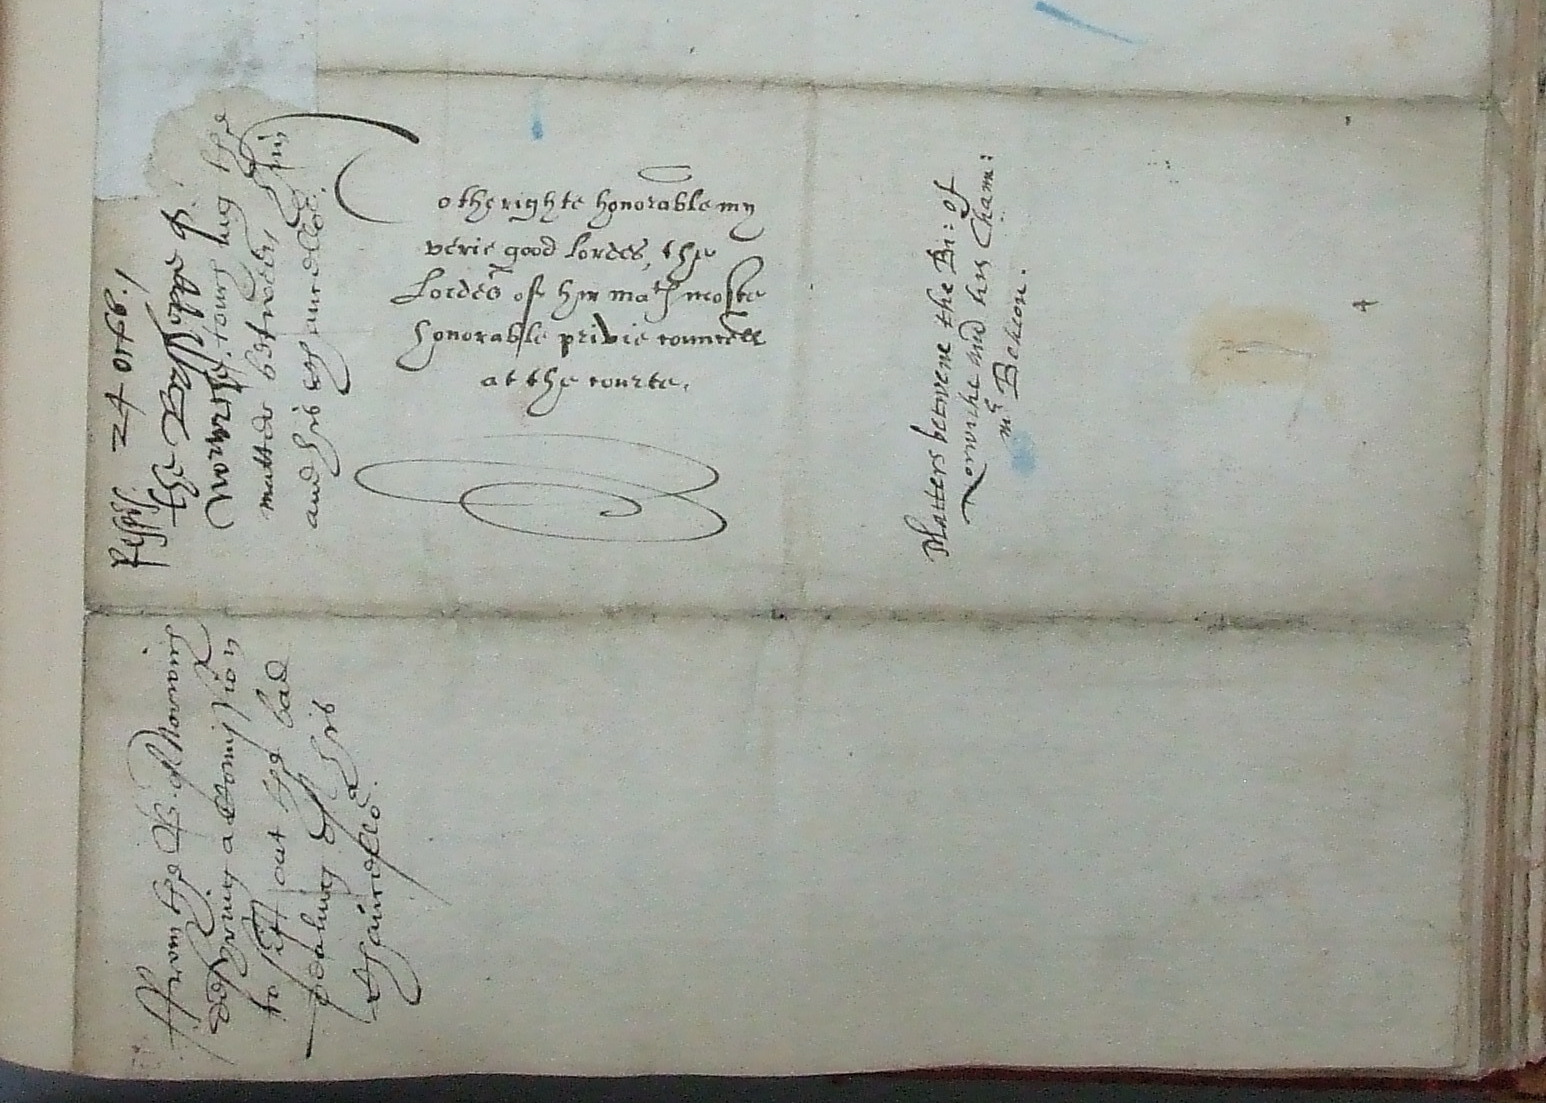 To the righte honorable my
verie good lordes, the
Lordes of her ma^ts moste
honorable privie councell
at the courte.
24 Octob:
The B of
Norwich touching the
matter betweene him
and his chauncellor.
Matters betwene the Bi: of
Norwiche and his Cham:
m^r Becon.
4
From the B. of Norwich
desyring a Comission
to sift out the bad
dealing of his
chauncellor.